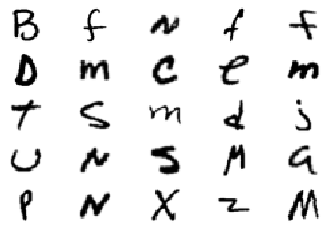 B f N f f
D m C e m
T S m d j
U N S M a
P N X z M